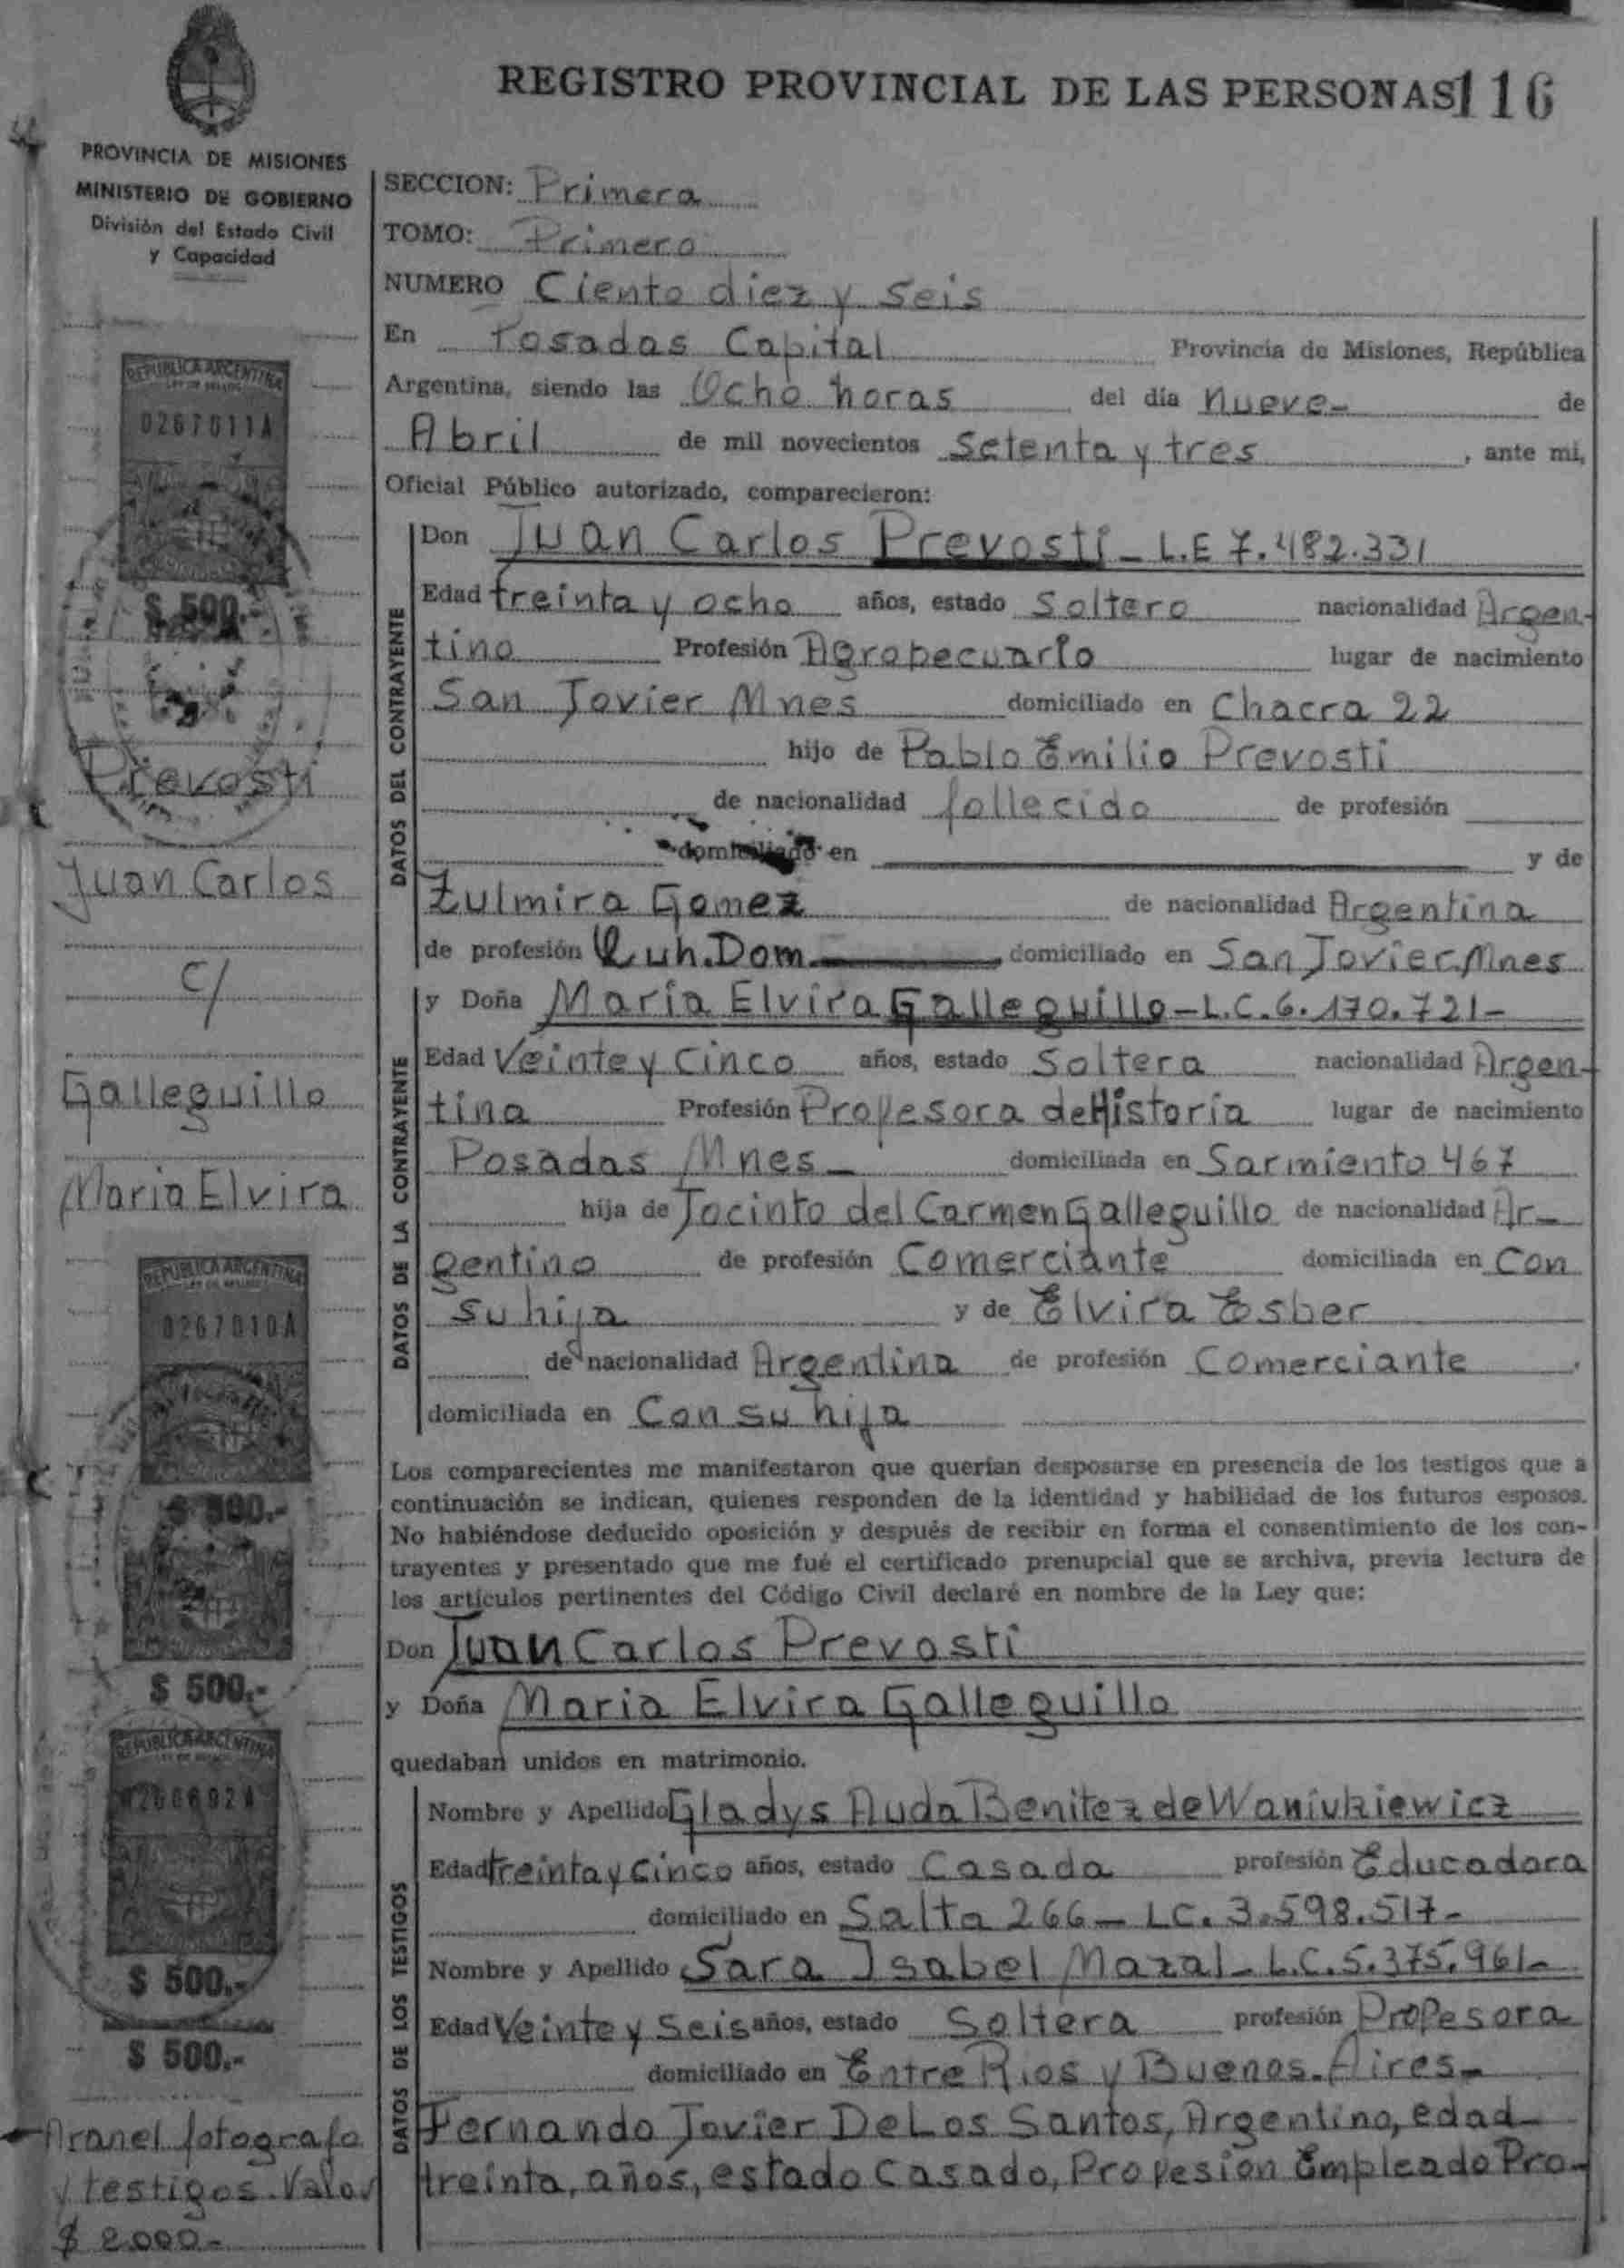 REGISTRO PROVINCIAL DE LAS PERSONAS 116
PROVINCIA DE MISIONES
MINISTERIO DE GOBIERNO
División del Estado Civil
y Capacidad
REPUBLICA ARGENTINA
0267011A
$ 500.-
Prevosti
Juan Carlos
c/
Galleguillo
Maria Elvira
REPUBLICA ARGENTINA
0267010A
$ 500.-
$ 500.-
REPUBLICA ARGENTINA
$ 500.-
$ 500.-
Arancel fotografo
y testigos. Valor
$ 2.000.-
SECCION: Primera
TOMO: Primero
NUMERO Ciento diez y seis
En Posadas Capital Provincia de Misiones, República
Argentina, siendo las Ocho horas del día nueve- de
Abril de mil novecientos setenta y tres, ante mi,
Oficial Público autorizado, comparecieron:
DATOS DEL CONTRAYENTE
Don Juan Carlos Prevosti - L.E 7.482.331
Edad treinta y ocho años, estado soltero nacionalidad Argen-
tino Profesión Agropecuario lugar de nacimiento
San Javier Mnes domiciliado en Chacra 22
hijo de Pablo Emilio Prevosti
de nacionalidad fallecido de profesión
domiciliado en y de
Zulmira Gomez de nacionalidad Argentina
de profesión Quh. Dom. domiciliado en San Javier. Mnes
DATOS DE LA CONTRAYENTE
y Doña María Elvira Galleguillo - L.C. 6.170.721-
Edad Veinte y cinco años, estado soltera nacionalidad Argen-
tina Profesión Profesora de Historia lugar de nacimiento
Posadas Mnes- domiciliada en Sarmiento 467
hija de Jacinto del Carmen Galleguillo de nacionalidad Ar-
gentino de profesión Comerciante domiciliada en Con
su hija y de Elvira Esber
de nacionalidad Argentina de profesión Comerciante
domiciliada en Con su hija
Los comparecientes me manifestaron que querían desposarse en presencia de los testigos que a
continuación se indican, quienes responden de la identidad y habilidad de los futuros esposos.
No habiéndose deducido oposición y después de recibir en forma el consentimiento de los con-
trayentes y presentado que me fué el certificado prenupcial que se archiva, previa lectura de
los artículos pertinentes del Código Civil declaré en nombre de la Ley que:
Don Juan Carlos Prevosti
y Doña Maria Elvira Galleguillo
quedaban unidos en matrimonio.
DATOS DE LOS TESTIGOS
Nombre y Apellido Gladys Auda Benitez de Waniukiewicz
Edad treinta y cinco años, estado Casada profesión Educadora
domiciliado en Salta 266 - LC. 3.598.517-
Nombre y Apellido Sara Isabel Mazal - L.C. 5.375.961-
Edad Veinte y seis años, estado Soltera profesión Profesora
domiciliado en Entre Rios y Buenos Aires-
Fernando Javier De Los Santos, Argentino, edad
treinta, años, estado Casado, Profesion Empleado Pro-